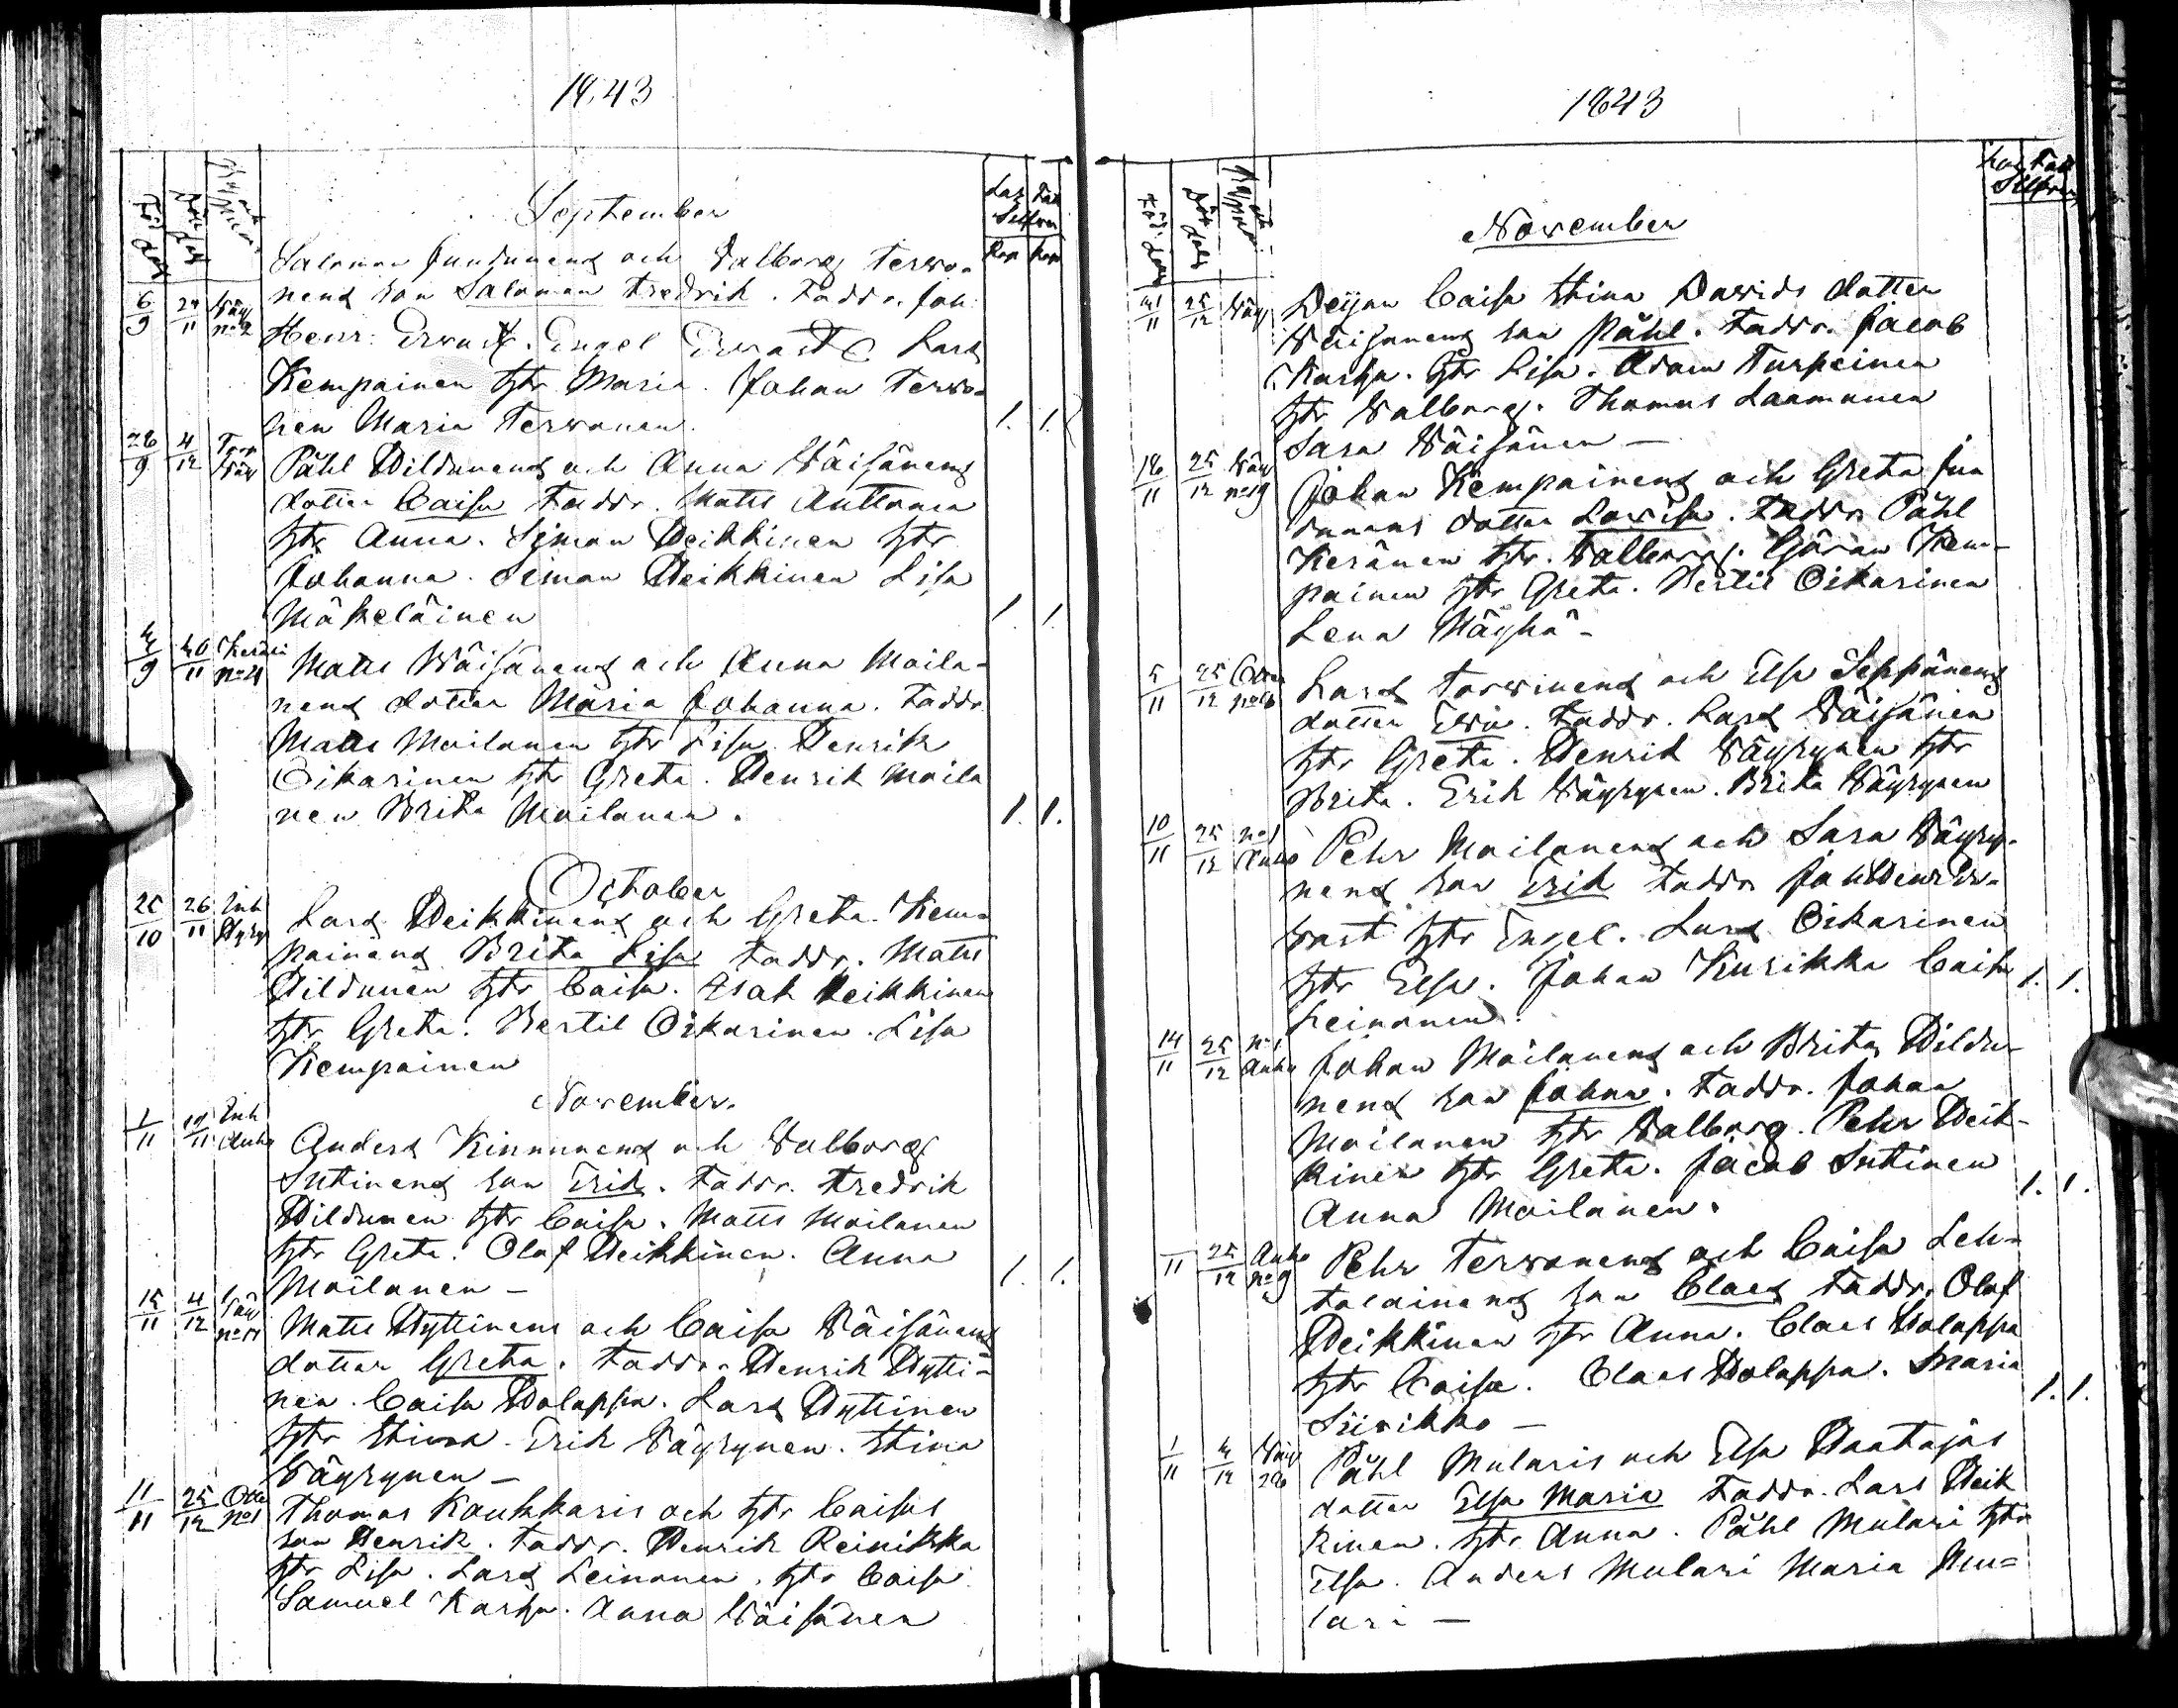 1843
September
Salomon Jundunens och Valborg Terwo-
6/9 24/11 Väy no 2 nens son Salomon Fredrik. Faddr. Joh
Henr: Ervast. Engel Ervast. Lars
Kempainen htr Maria. Johan Terwo-
nen Maria Terwonen. 1. 1.
28/9 4/12 Påhl Hildunens och Anna Väisänens
dotter Caisa Faddr. Matts Anttonen
htr Anna. Simon Heikkinen htr
Johanna. Simon Heikkinen Lisa
Mäkeläinen 1. 1.
Matts Väisänens och Anna Moila-
nens dotter Maria Johanna. Faddr.
Matts Moilanen htr Lisa. Henrik
Oikarinen htr Greta. Henrik Moila
nen Brita Moilanen. 1. 1.
October
25/10 26/11 Lars Heikkinens och Greta Kem-
painens Brita Lisa Faddr. Matts
Hildunen htr Caisa. Isak Heikkinen
htr Greta. Bertil Oikarinen. Lisa
Kempainen
November.
Anders Kinnunens och Valborg
Sutinens son Erik. Faddr. Fredrik
Hildunen htr Caisa. Matts Moilanen
htr Greta. Olof Heikkinen. Anna
Moilanen – 1. 1.
15/11 4/12 Matts Hyttinens och Caisa Väisänens
dotter Greta. Faddr. Henrik Hytti-
nen. Caisa Holappa. Lars Hyttinen
htr Stina. Erik Väyrynen. Stina
Väyrynen –
11/11 25/12 no 1 Thomas Koukkaris och htr Caisas
son Henrik. Faddr. Henrik Reinikka
htr Lisa. Lars Leinonen. htr Caisa
Samuel Karhu. Anna Väisänen
1843
November
25/12 Väy Deijan Caisa Stina Davids dotter
Väisänens son Påhl. Faddr. Jacob
Karhu. htr Lisa. Adam Turpeinen
htr Valborg. Thomas Laamanen
Sara Väisänen –
18/11 25/12 Väy no 19 Johan Kempainens och Greta Jun
dunens dotter Lovisa. Faddr. Påhl
Keränen htr. Valborg. Göran Kem-
painen htr Greta. Bertil Oikarinen
Lena Mäyhä –
5/11 25/12 Lars Torvinens och Elsa Seppänens
dotter Eva. Faddr. Lars Väisänen
htr Greta. Henrik Väyrynen htr
Brita. Erik Väyrynen. Brita Väyrynen
10/11 25/12 no 1 Pehr Moilanens och Sara Väyry-
nens son Erik Faddr Joh Henr Er-
vast htr Engel. Lars Oikarinen
htr Elsa. Johan Kurikka Caisa
Leinonen. 1. 1.
14/11 25/12 no 1 Johan Moilanens och Brita Hildu-
nens son Johan. Faddr. Johan
Moilanen htr Valborg. Pehr Heik-
kinen htr Greta. Jacob Sutinen
Anna Moilanen. 1. 1.
11 25/12 no 9 Pehr Terwonens och Caisa Leh-
tolainens son Claes Faddr. Olof
Heikkinen htr Anna. Claes Holappa
htr Caisa. Claes Holappa. Maria
– 1. 1.
1/11 Väy 28 Påhl Mularis och Elsa Haatajas
dotter Elsa Maria Faddr. Lars Heik
kinen. htr Anna. Påhl Mulari htr
Elsa. Anders Mulari Maria Mu-
lari –